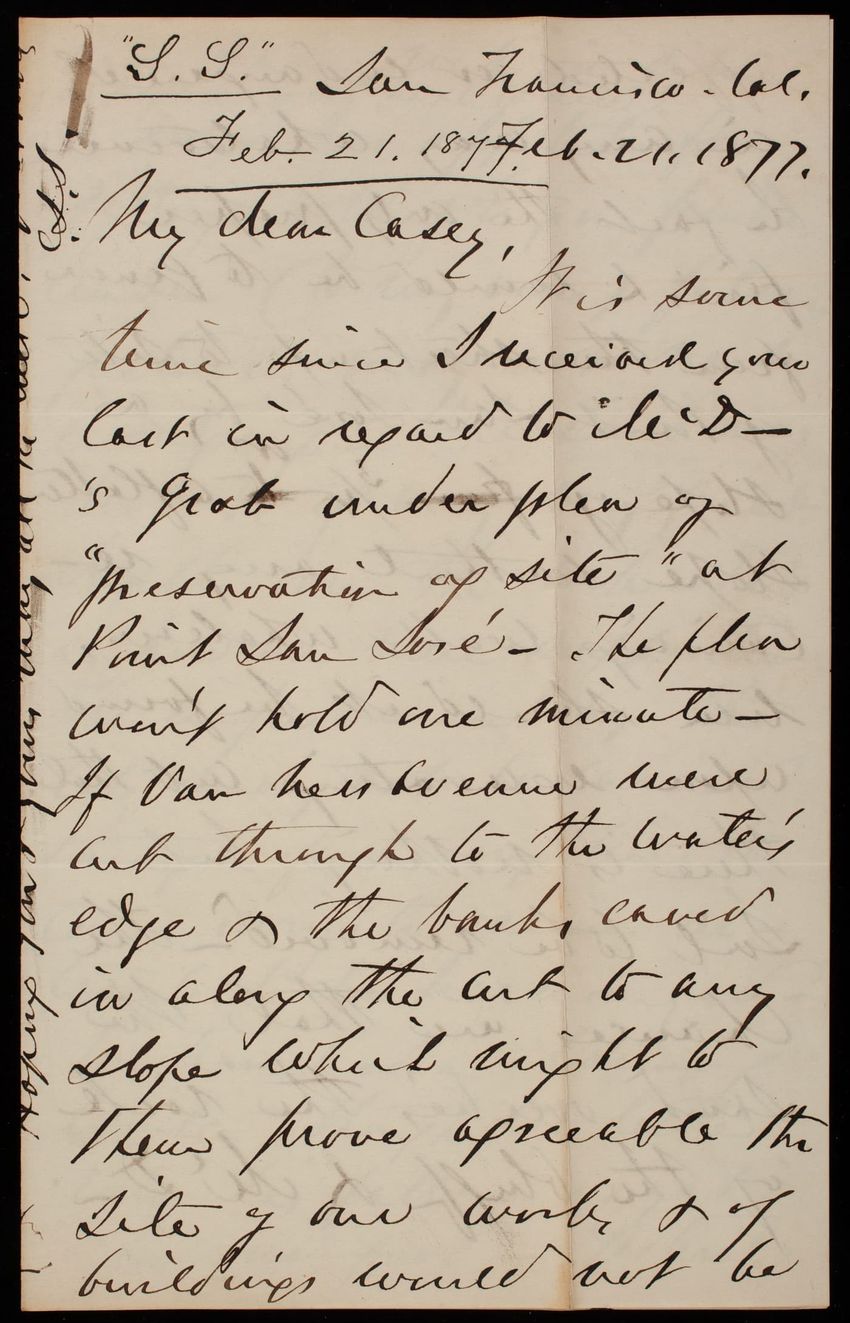 "S. S."
San Francisco. Cal.
Feb. 21. 1877. Feb. 21. 1877.
My dear Casey,
It is some
time since I received your
last in regard to McD—
's Grab under plea of
"preservation of site" at
Point San José — The plea
won't hold one minute —
If Van Ness Avenue were
cut through to the water's
edge & the banks caved
in along the cut to any
slope which might to
them prove agreeable the
site of our works & of
buildings would not be
Hoping you & yours may all be well,